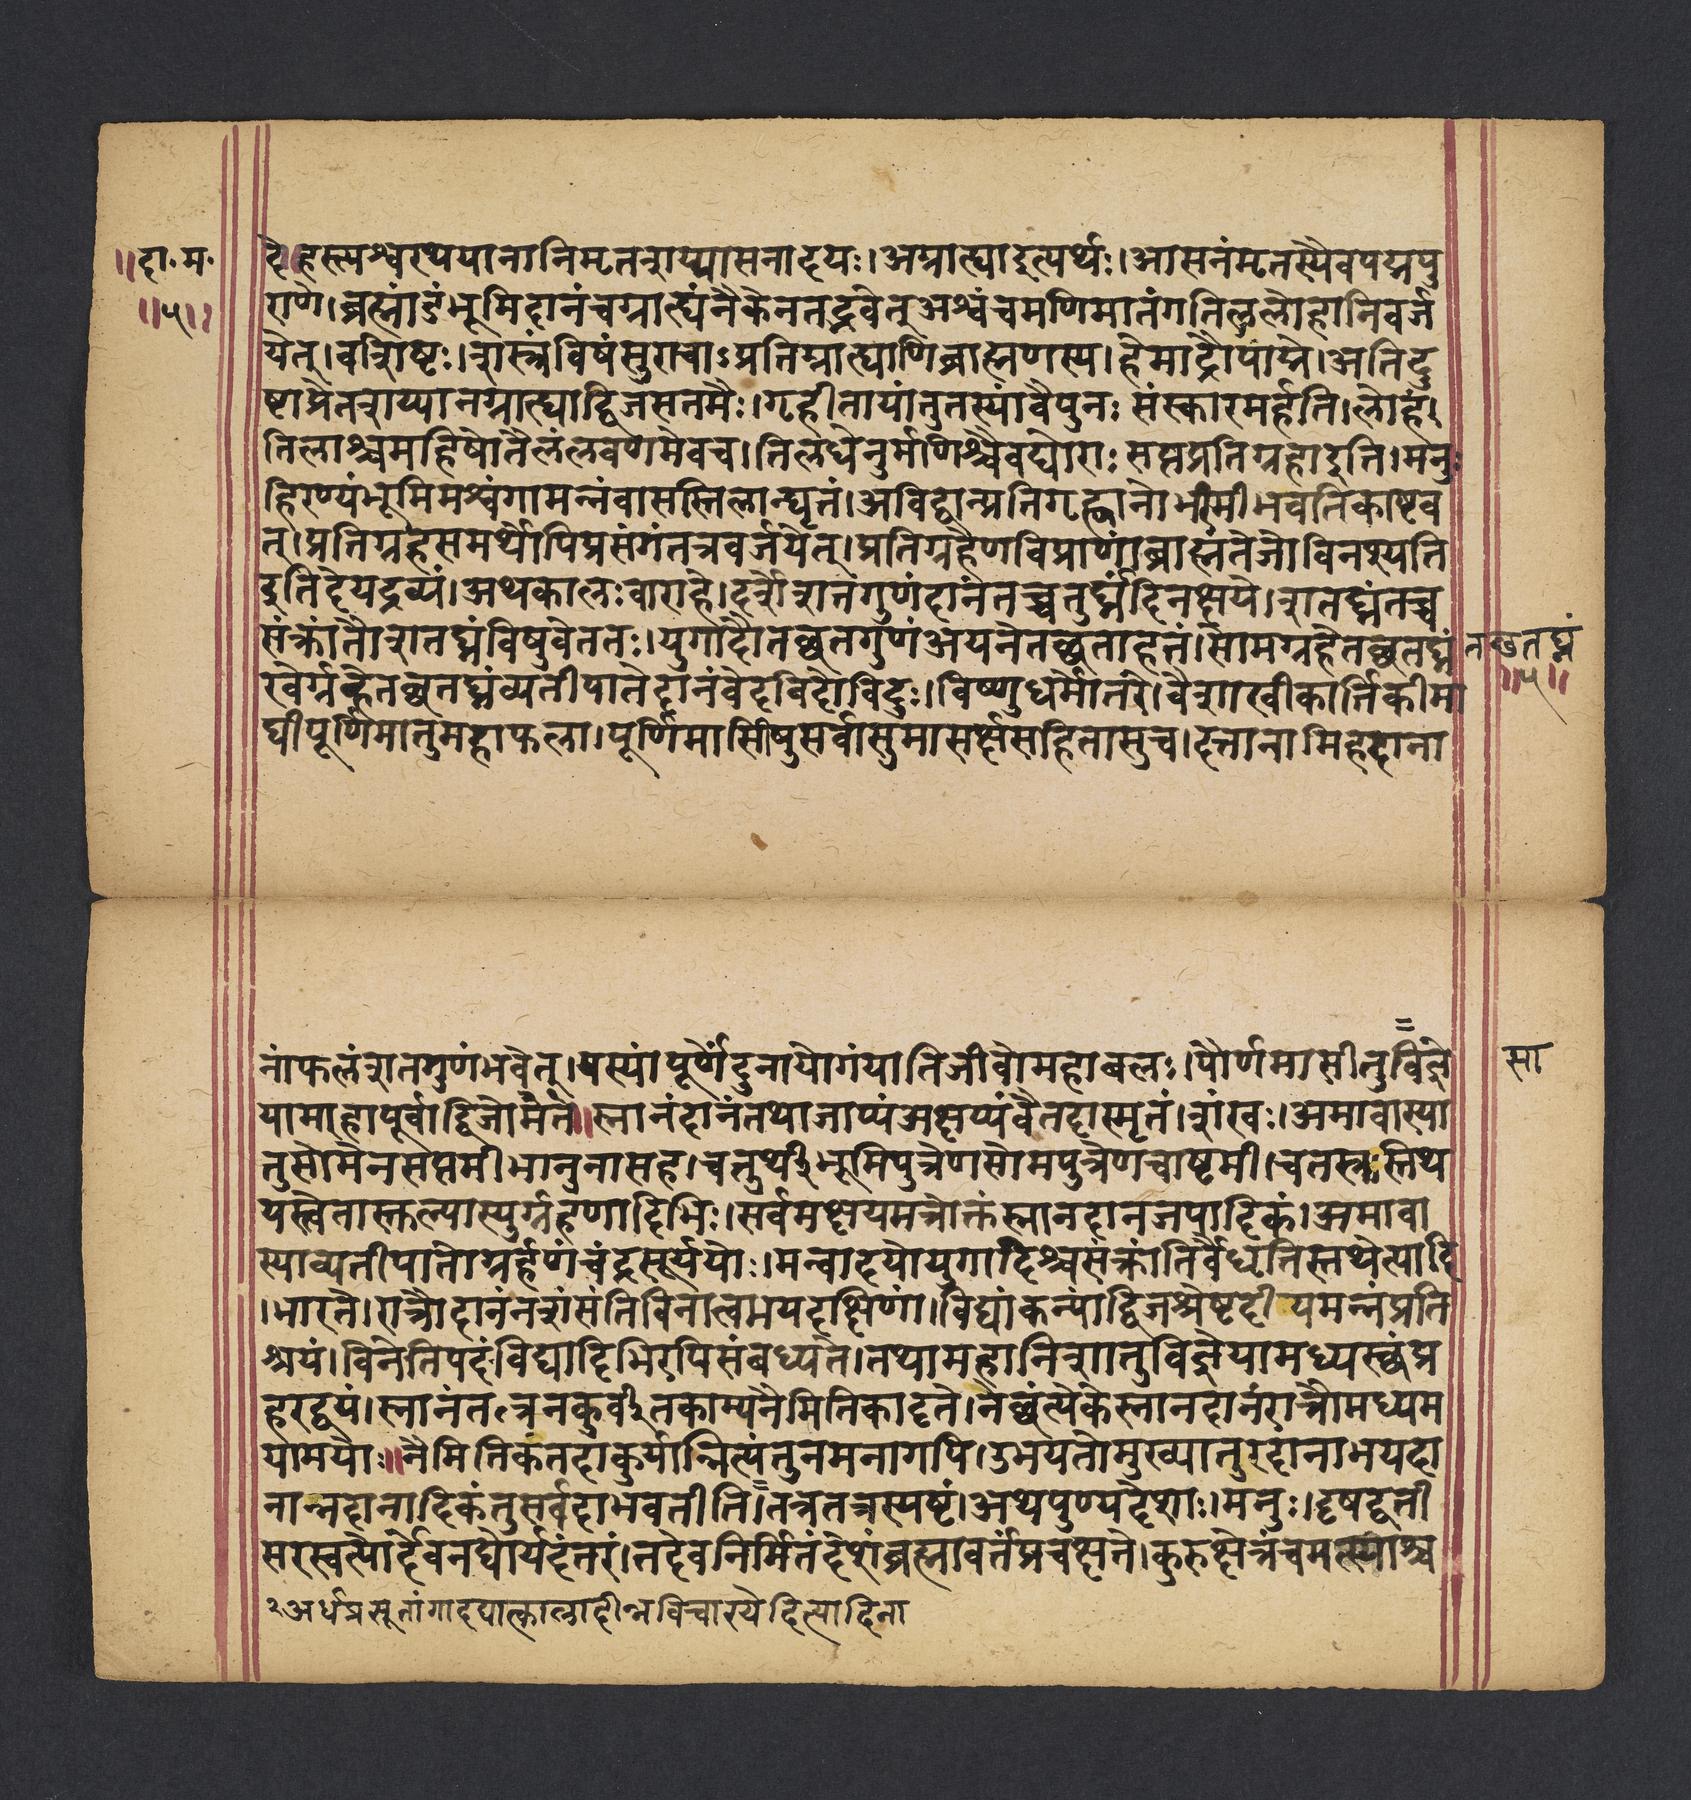 ॥दा॰म॰
॥५॥
दे॥हस्त्यश्वरथयानानिमृतशय्यासनादयः।अग्राह्याइत्यर्थः।आसनंमृतस्यैवपद्मपु
राणे।ब्रह्मांडंभूमिदानंचग्राह्यंनैकेनतद्भवेत्अश्वंचमणिमातंगतिललोहानिवर्ज
येत्।वशिष्टः।शस्त्रंविषंसुराचाऽप्रतिग्राह्याणिब्राह्मणस्य।हेमाद्रौपाद्मे।अतिदु
ष्टाप्रेतशय्यानग्राह्याद्विजसतमैः।गृहीतायांतुतस्यांवैपुनः संस्कारमर्हति।लोहं।
तिलाश्चमहिषोतैलंलवणमेवच।तिलधेनुर्मणिश्चैवघोराः सप्तप्रतिग्रहाइति।मनुः
हिरण्यंभूमिमश्वंगामन्नंवासस्तिलान्घृतं।अविद्वान्प्रतिगृह्णानोभस्मीभवतिकाष्टव
त्।प्रतिग्रहसमर्थोपिप्रसंगंतत्रवर्जयेत्।प्रतिग्रहेणविप्राणांब्राह्मंतेजोविनश्यति
इतिदेयद्रव्यं।अथकालःवाराहे।दर्शेशतगुणंदानंतच्चतुर्घ्नंदिनक्षये।शतघ्नंतच्च
संक्रांतौशतघ्नंविषुवेततः।युगादौतच्छतगुणंअयनेतच्छताहतं।सोमग्रहेतच्छतघ्नं तच्छतघ्नं
रवेर्ग्रहेतच्छतघ्नंव्यतीपातेदानंवेदविदोविदुः।विष्णुधर्मोतरे।वैशाखीकार्त्तिकीमा
॥५॥
घीपूर्णिमातुमहाफला।पूर्णिमासीषुसर्वासुमासर्क्षसहितासुच।दत्तानामिहदाना
नांफलंशतगुणंभवेत्।यस्यांपूर्णेंदुनायोगंयातिजीवोमहाबलः।पौर्णमासीतुविज्ञे
सा
यामाहापूर्वाद्विजोमते॥स्नानंदानंतथाजाप्यंअक्षय्यंवैतदास्मृतं।शंखः।अमावास्या
तुसोमेनसप्तमीभानुनासह।चतुर्थीभूमिपुत्रेणसोमपुत्रेणचाष्टमी।चतस्त्रःस्तिथ
यस्त्वेतास्तल्पास्युर्ग्रहणादिभिः।सर्वमक्षयमत्रोक्तंस्नानदानजपादिकं।अमावा
स्याव्यतीपातोग्रर्हणंचंद्रसूर्ययोः।मन्वादयोयुगादिश्चसंक्रांतिर्वैधृतिस्तथेत्यादि
।भारते।रात्रौदानंनशंसंतिविनात्वभयदक्षिणां।विद्यांकन्यांद्विजश्रेष्टदी यमन्नंप्रति
श्रयं।विनेतिपदंविद्यादिभिरपिसंबध्यते।तथामहानिशातुविज्ञेयामध्यस्छंप्र
हरद्वयं।स्नानंतत्रनकुर्वीतकाम्यनैमितिकादृते।नेछंत्येकेस्नानदानंरात्रौमध्यम
यामयोः॥नैमितिकंतदाकुर्यान्नित्यंतुनमनागपि।उभयतोमुख्यातुरदांनाभयदा
नान्नदानादिकंतुसर्वदाभवतीति।तत्रतत्रस्पष्टं।अथपुण्यदेशाः।मनुः।दृषद्वती
सरस्वत्योर्देवनद्योर्यदंतरं।तदेवनिर्मितंदेशंब्रह्मावर्तंप्रचक्षते।कुरुक्षेत्रंचमत्स्याश्च
२अर्धप्रसूतांगादद्यात्कालादीन्नविचारयेदित्यादिना